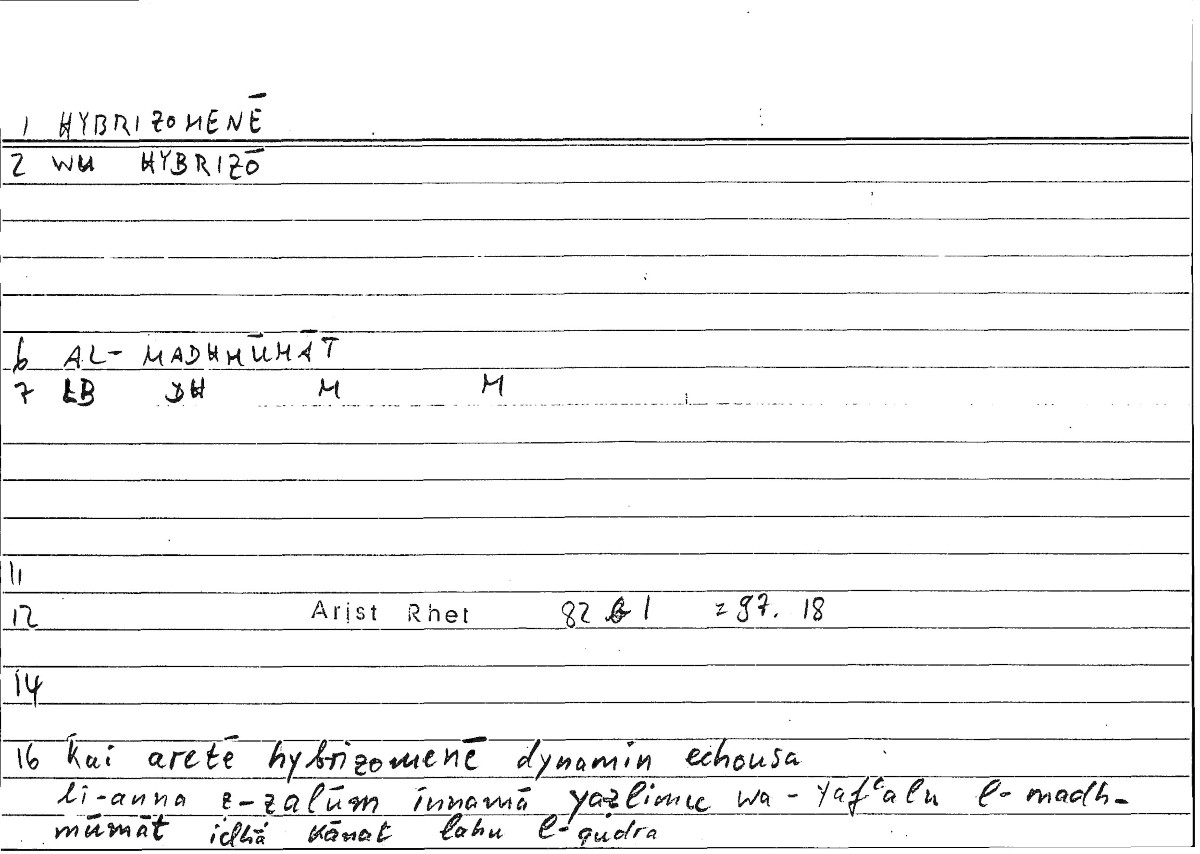 1 HYBRIZOMENĒ
2 WH HYBRIZŌ
6 AL- MADHMŪMĀT
7 LB DH M M
11
12 Arist Rhet 82 b 1 = 97. 18
14
16 Kai aretē hybrizomenē dynamin echousa
li-anna z-zalūm innamā yazlimu wa-yafʿalu l-madh-
mūmāt idhā kānat lahu l-qudra